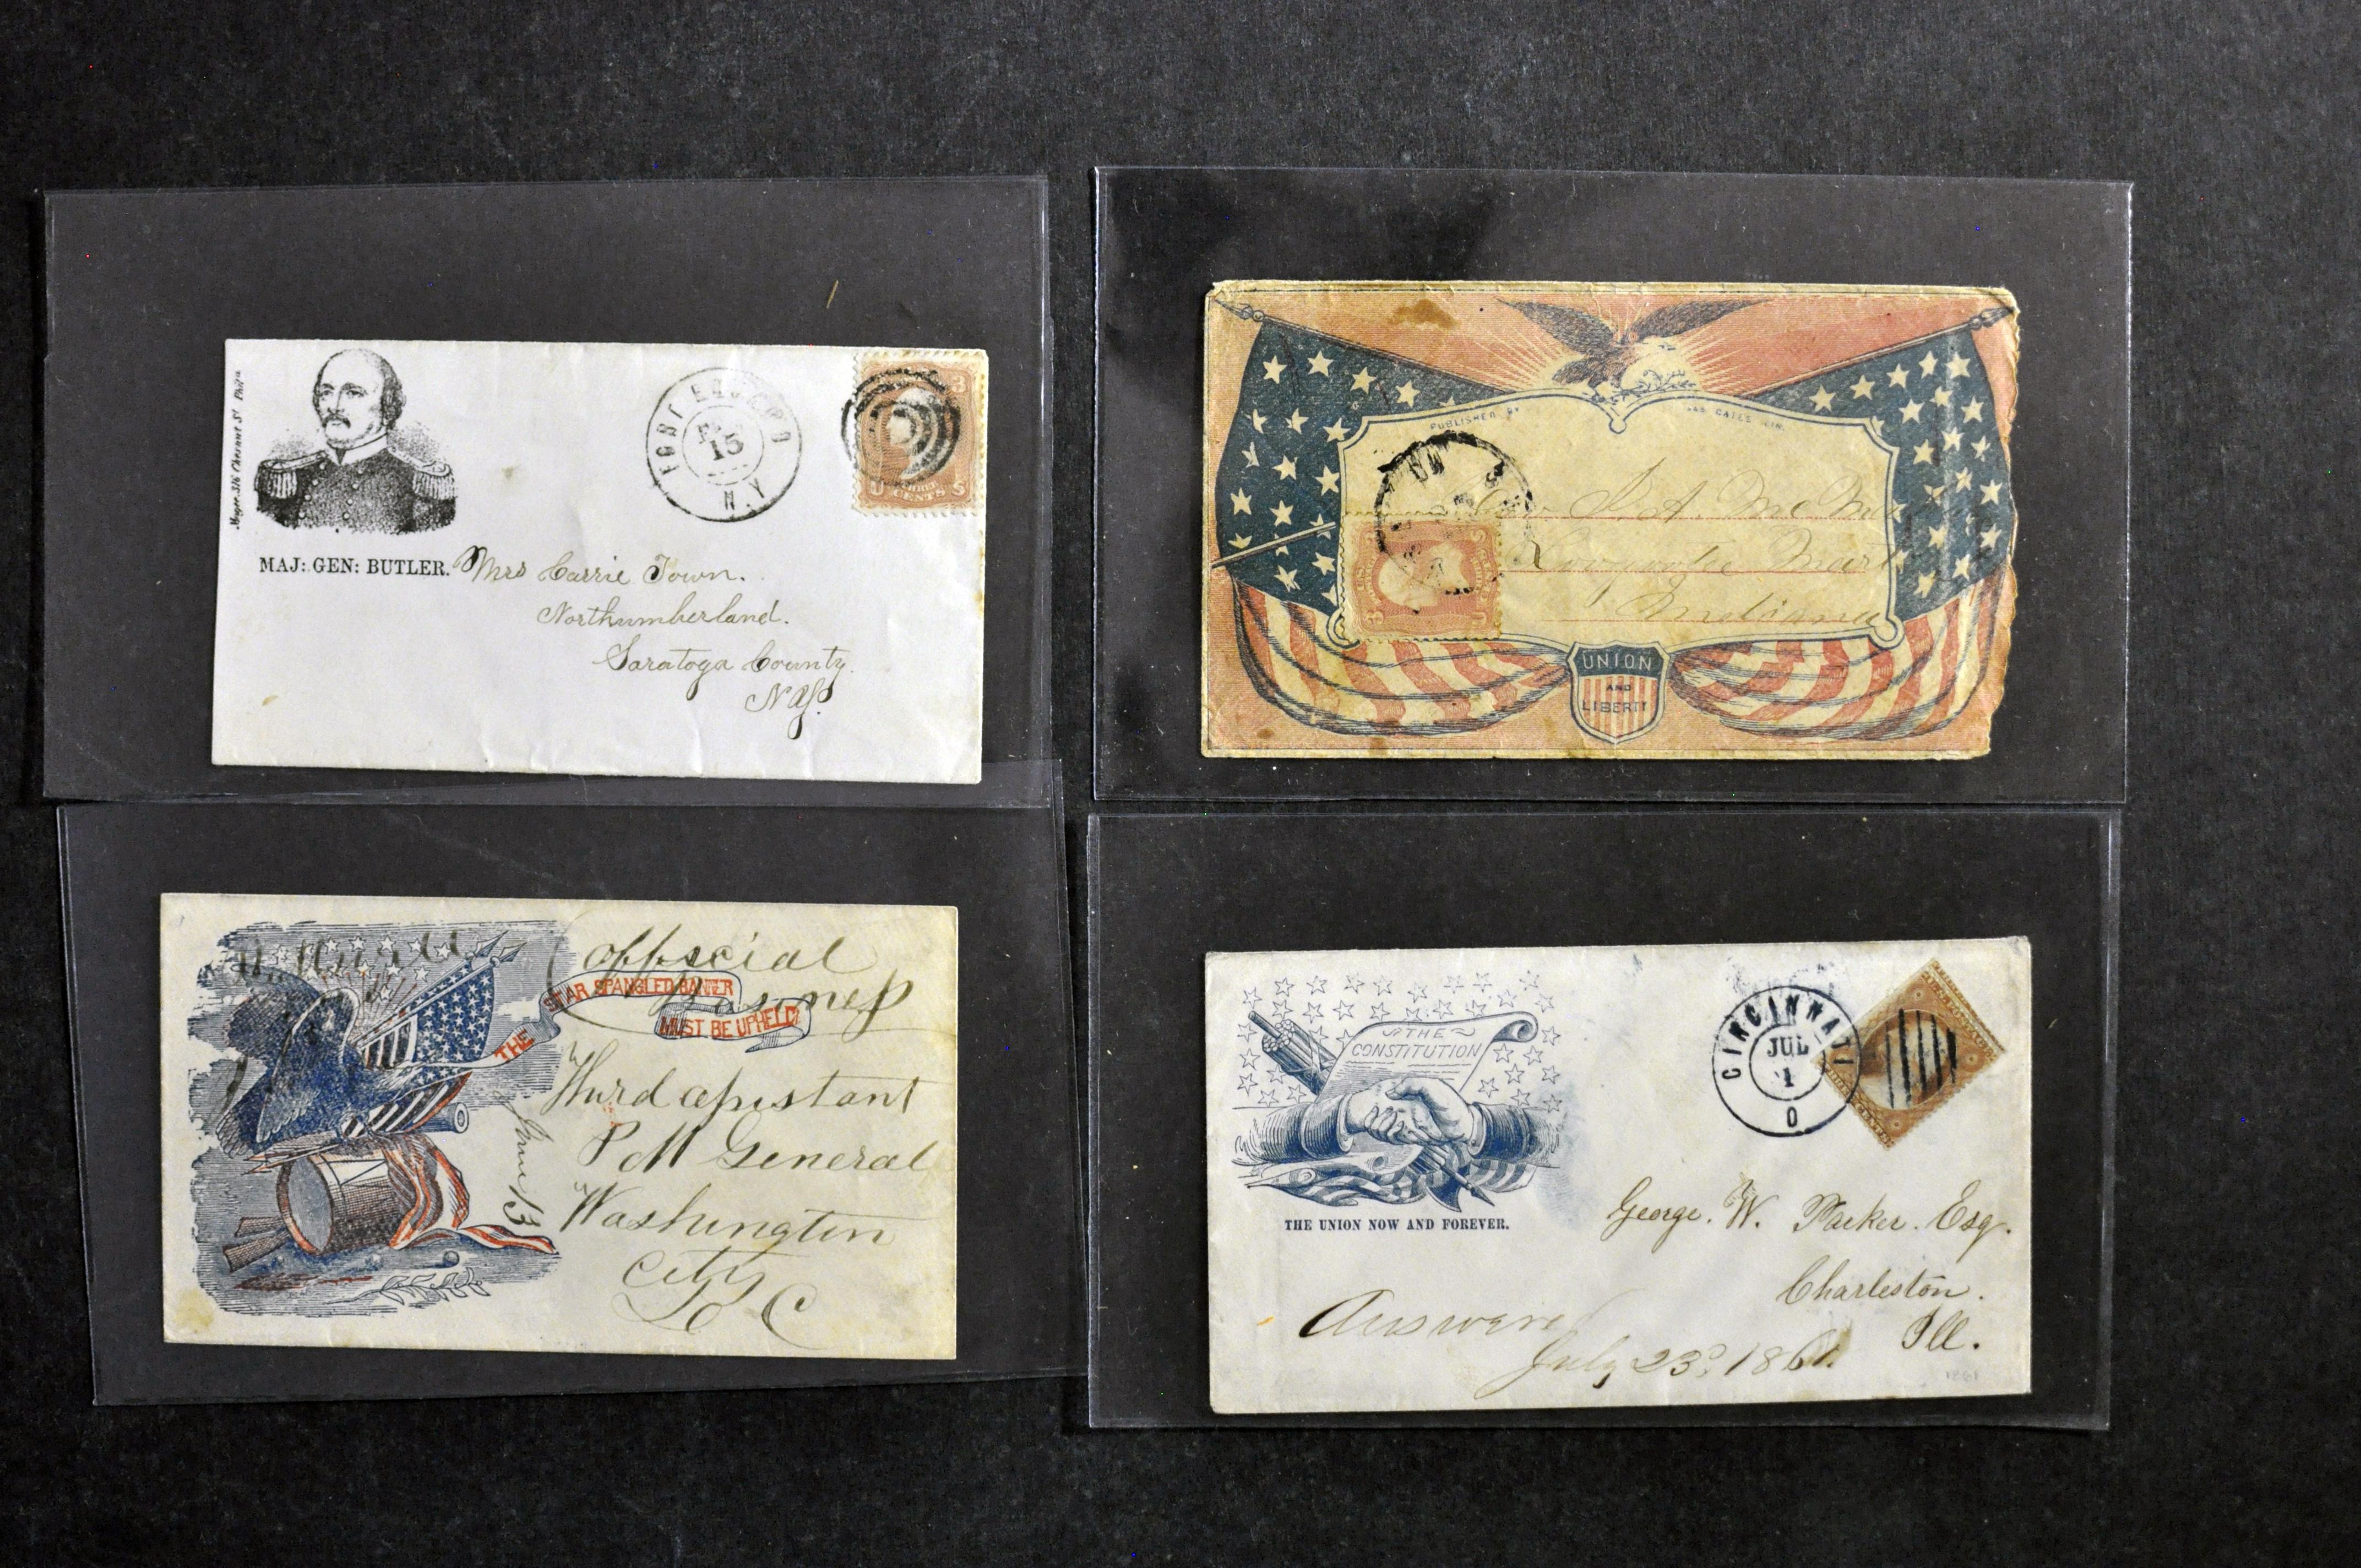 Magee, 316 Chesnut St Phila
MAJ: GEN: BUTLER.
FORT EDWARD
15
N.Y
3
U THREE S
CENTS
Mrs Carrie Town.
Northumberland.
Saratoga County.
N.Y.
PUBLISHED BY
JAS GATES CIN.
P. A. Mc
Indiana
UNION
AND
LIBERTY
Official
Business
THE STAR SPANGLED BANNER
MUST BE UPHELD!
Third assistant
P M General
Washington
City
D C
June 13
THE
CONSTITUTION
THE UNION NOW AND FOREVER.
CINCINNATI
JUL
1
O
George. W. Parker. Esq.
Charleston.
Ill.
Answered
July 23d, 1861.
1861